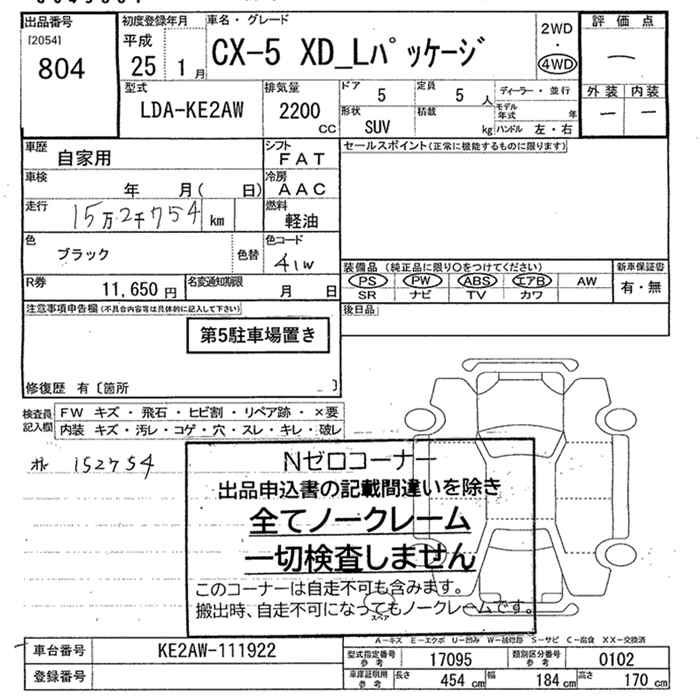 出品番号
[2054]
804
初度登録年月
平成
25 1月
車名・グレード
CX-5 XD_Lパッケージ
2WD
・
4WD
評価点
一
外装 内装
一 一
型式
LDA-KE2AW
排気量
2200
cc
ドア
5
定員
5人
形状
SUV
積載
kg
ディーラー・並行
モデル年式 年
ハンドル 左・右
車歴
自家用
シフト
FAT
車検
年 月( 日)
冷房
AAC
走行
15万2千754 km
燃料
軽油
色
ブラック
色替
色コード
41W
R券
11,650円
名変通知期限
月 日
セールスポイント(正常に機能するものに限ります)
装備品(純正品に限り○をつけてください)
PS PW ABS エアB AW
SR ナビ TV カワ
新車保証書
有・無
後日品
注意事項申告欄(不具合内容等は具体的に記入して下さい)
第5駐車場置き
修復歴 有〔箇所 〕
検査員記入欄
FW キズ・飛石・ヒビ割・リペア跡・×要
内装 キズ・汚レ・コゲ・穴・スレ・キレ・破レ
152754
Nゼロコーナー
出品申込書の記載間違いを除き
全てノークレーム
一切検査しません
このコーナーは自走不可も含みます。
搬出時、自走不可になってもノークレームです。
スペア
A-キズ E-エクボ U-凹み W-補修跡 S-サビ C-腐食 XX-交換済
車台番号
KE2AW-111922
登録番号
型式指定番号
参考
17095
類別区分番号
参考
0102
車庫証明用
参考
長さ 454 cm 幅 184 cm 高さ 170 cm